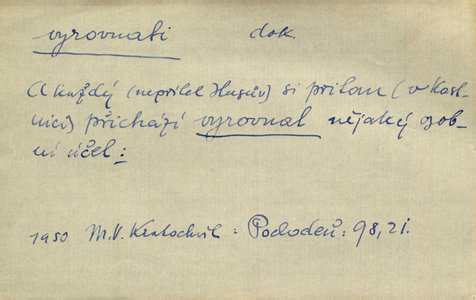 vyrovnati dok.
A každý (nepřítel Husův) si přitom (v Kost-
nici) přichází vyrovnat nějaký osob-
ní účel:
1950 M.V. Kratochvíl: Pochodeň: 98, 21.